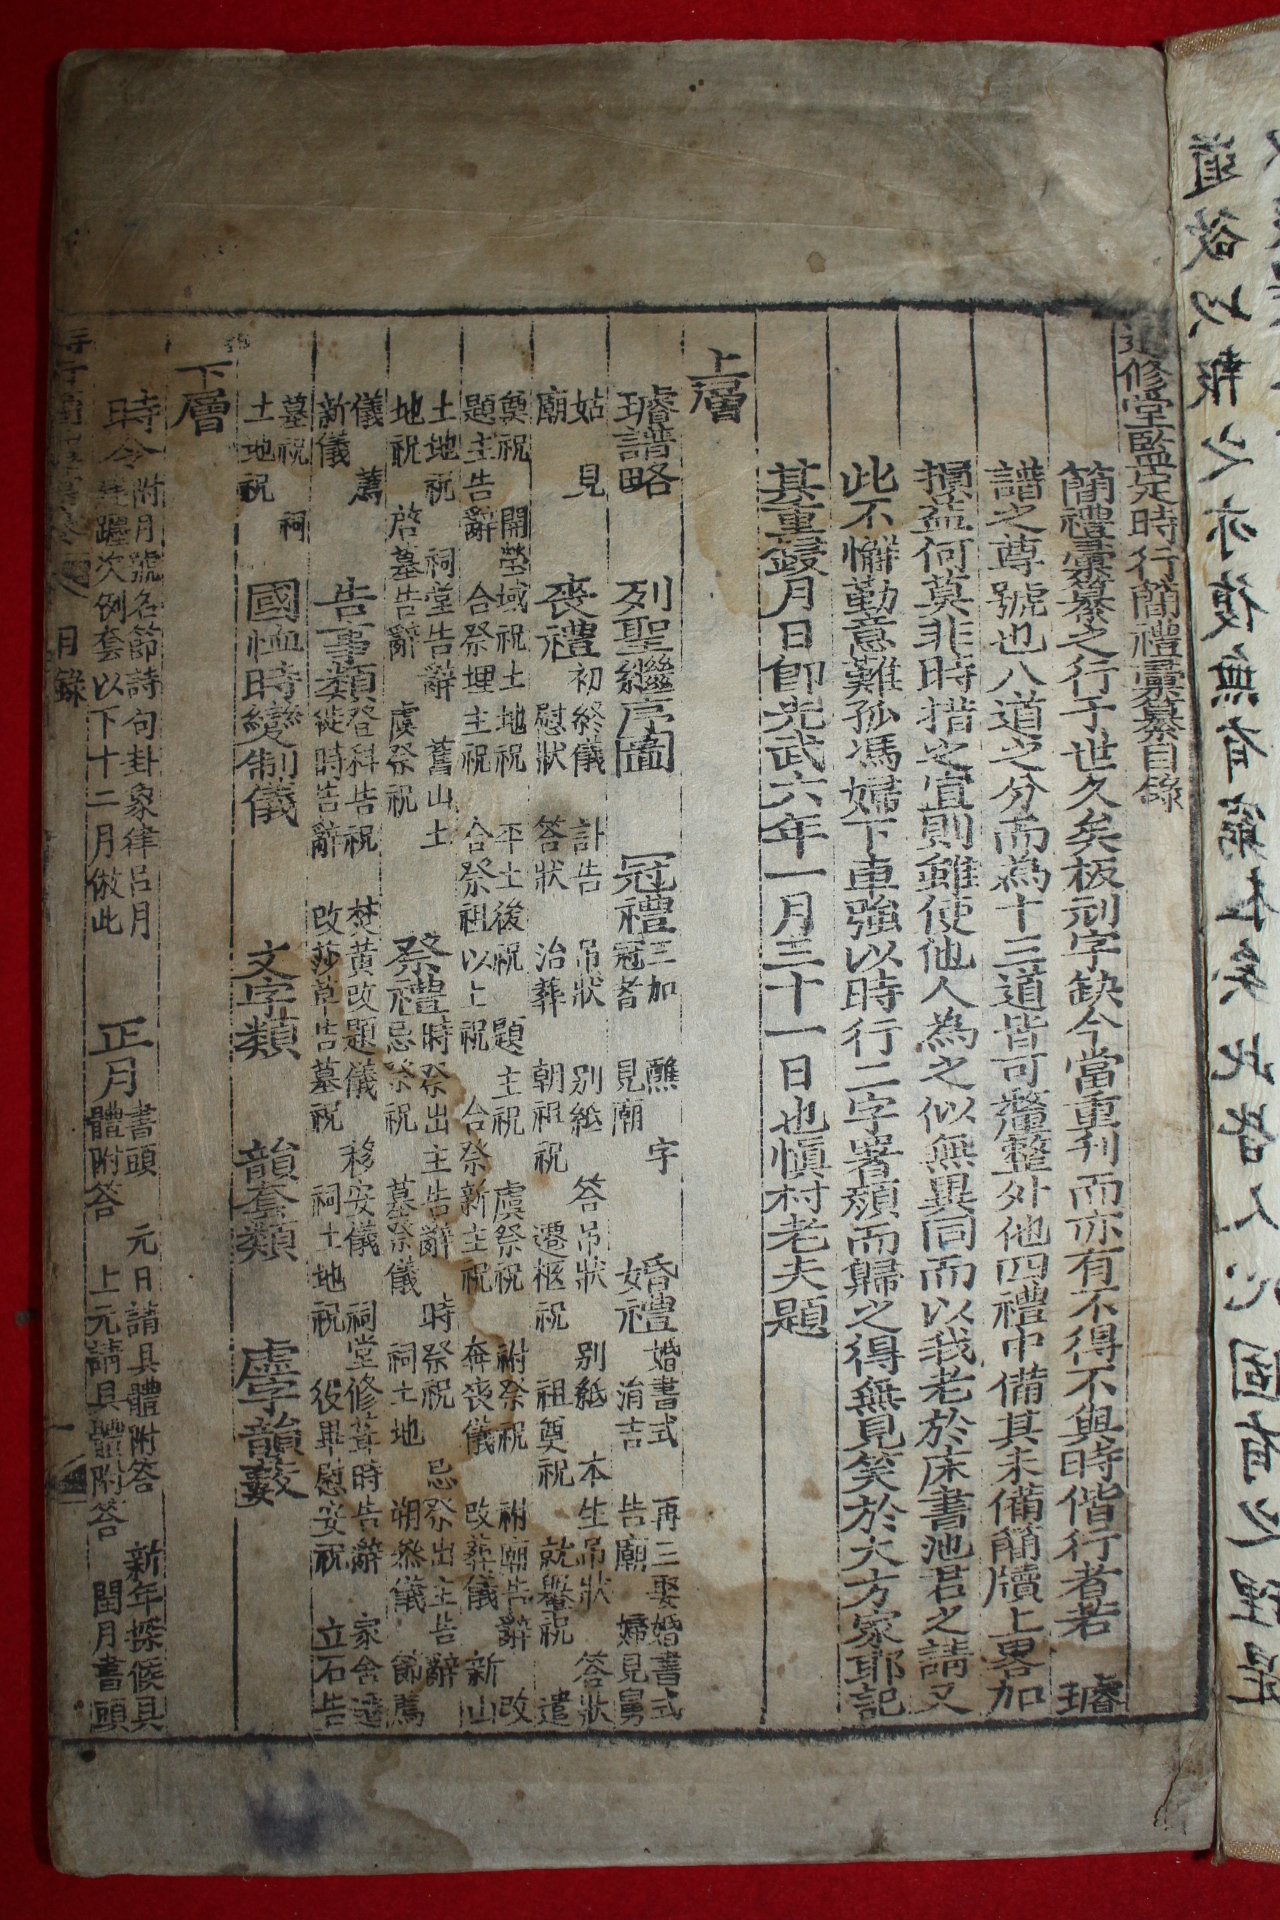 進修堂監定時行簡禮彙纂目錄
簡禮彙纂之行于世久矣板刓字缺今當重刊而亦有不得不與時偕行者若 璿
譜之尊號也八道之分而為十三道皆可釐整外他四禮中備其未備簡牘上畧加
損益何莫非時措之宜則雖使他人為之似無異同而以我老於床書池君之請又
此不懈勤意難孤馮婦下車強以時行二字署頹而歸之得無見笑於大方家耶記
其重鋟月日卽光武六年一月三十一日也愼村老夫題
上層
璿譜略 列聖繼序圖 冠禮 三加 醮 字 冠者 見廟 婚禮 婚書式 再三娶婚書式 婚 涓吉 告廟 婦見舅
姑 見廟 喪禮 初終儀 訃告 吊狀 別紙 答吊狀 別紙 本生吊狀 答狀 慰狀 答狀 治葬 朝祖祝 遷柩祝 祖奠祝 就轝祝 遣
奠祝 開塋域祝土地祝 平土後祝 題主祝 虞祭祝 祔祭祝 祔廟告辭 改
題主告辭 合祭埋主祝 合祭祖以上祝 合祭新主祝 奔喪儀 改葬儀 新山
土地祝 祠堂告辭 舊山土
地祝 啓墓告辭 虞祭祝 祭禮 時祭出主告辭 時祭祝 忌祭出主告辭 忌祭祝 墓祭儀 祠土地 朔參儀 節薦
儀 薦新儀 告事類 登科告祝 焚黃改題儀 移安儀 祠堂修葺時告辭 家舍遷
徙時告辭 改莎草告墓祝 祠土地祝 役畢慰安祝 立石告
墓祝 祠土地祝 國恤時變制儀 文字類 韻套類 虛字韻藪
下層
時令 附月號名節詩句卦象律呂月
躔次例套以下十二月倣此 正月 書頭 元日請具體附答 新年探候具
體附答 上元請具體附答 閏月書頭
目錄
一
道欲切報之亦復無有窮極矣此皆人心固有之理是